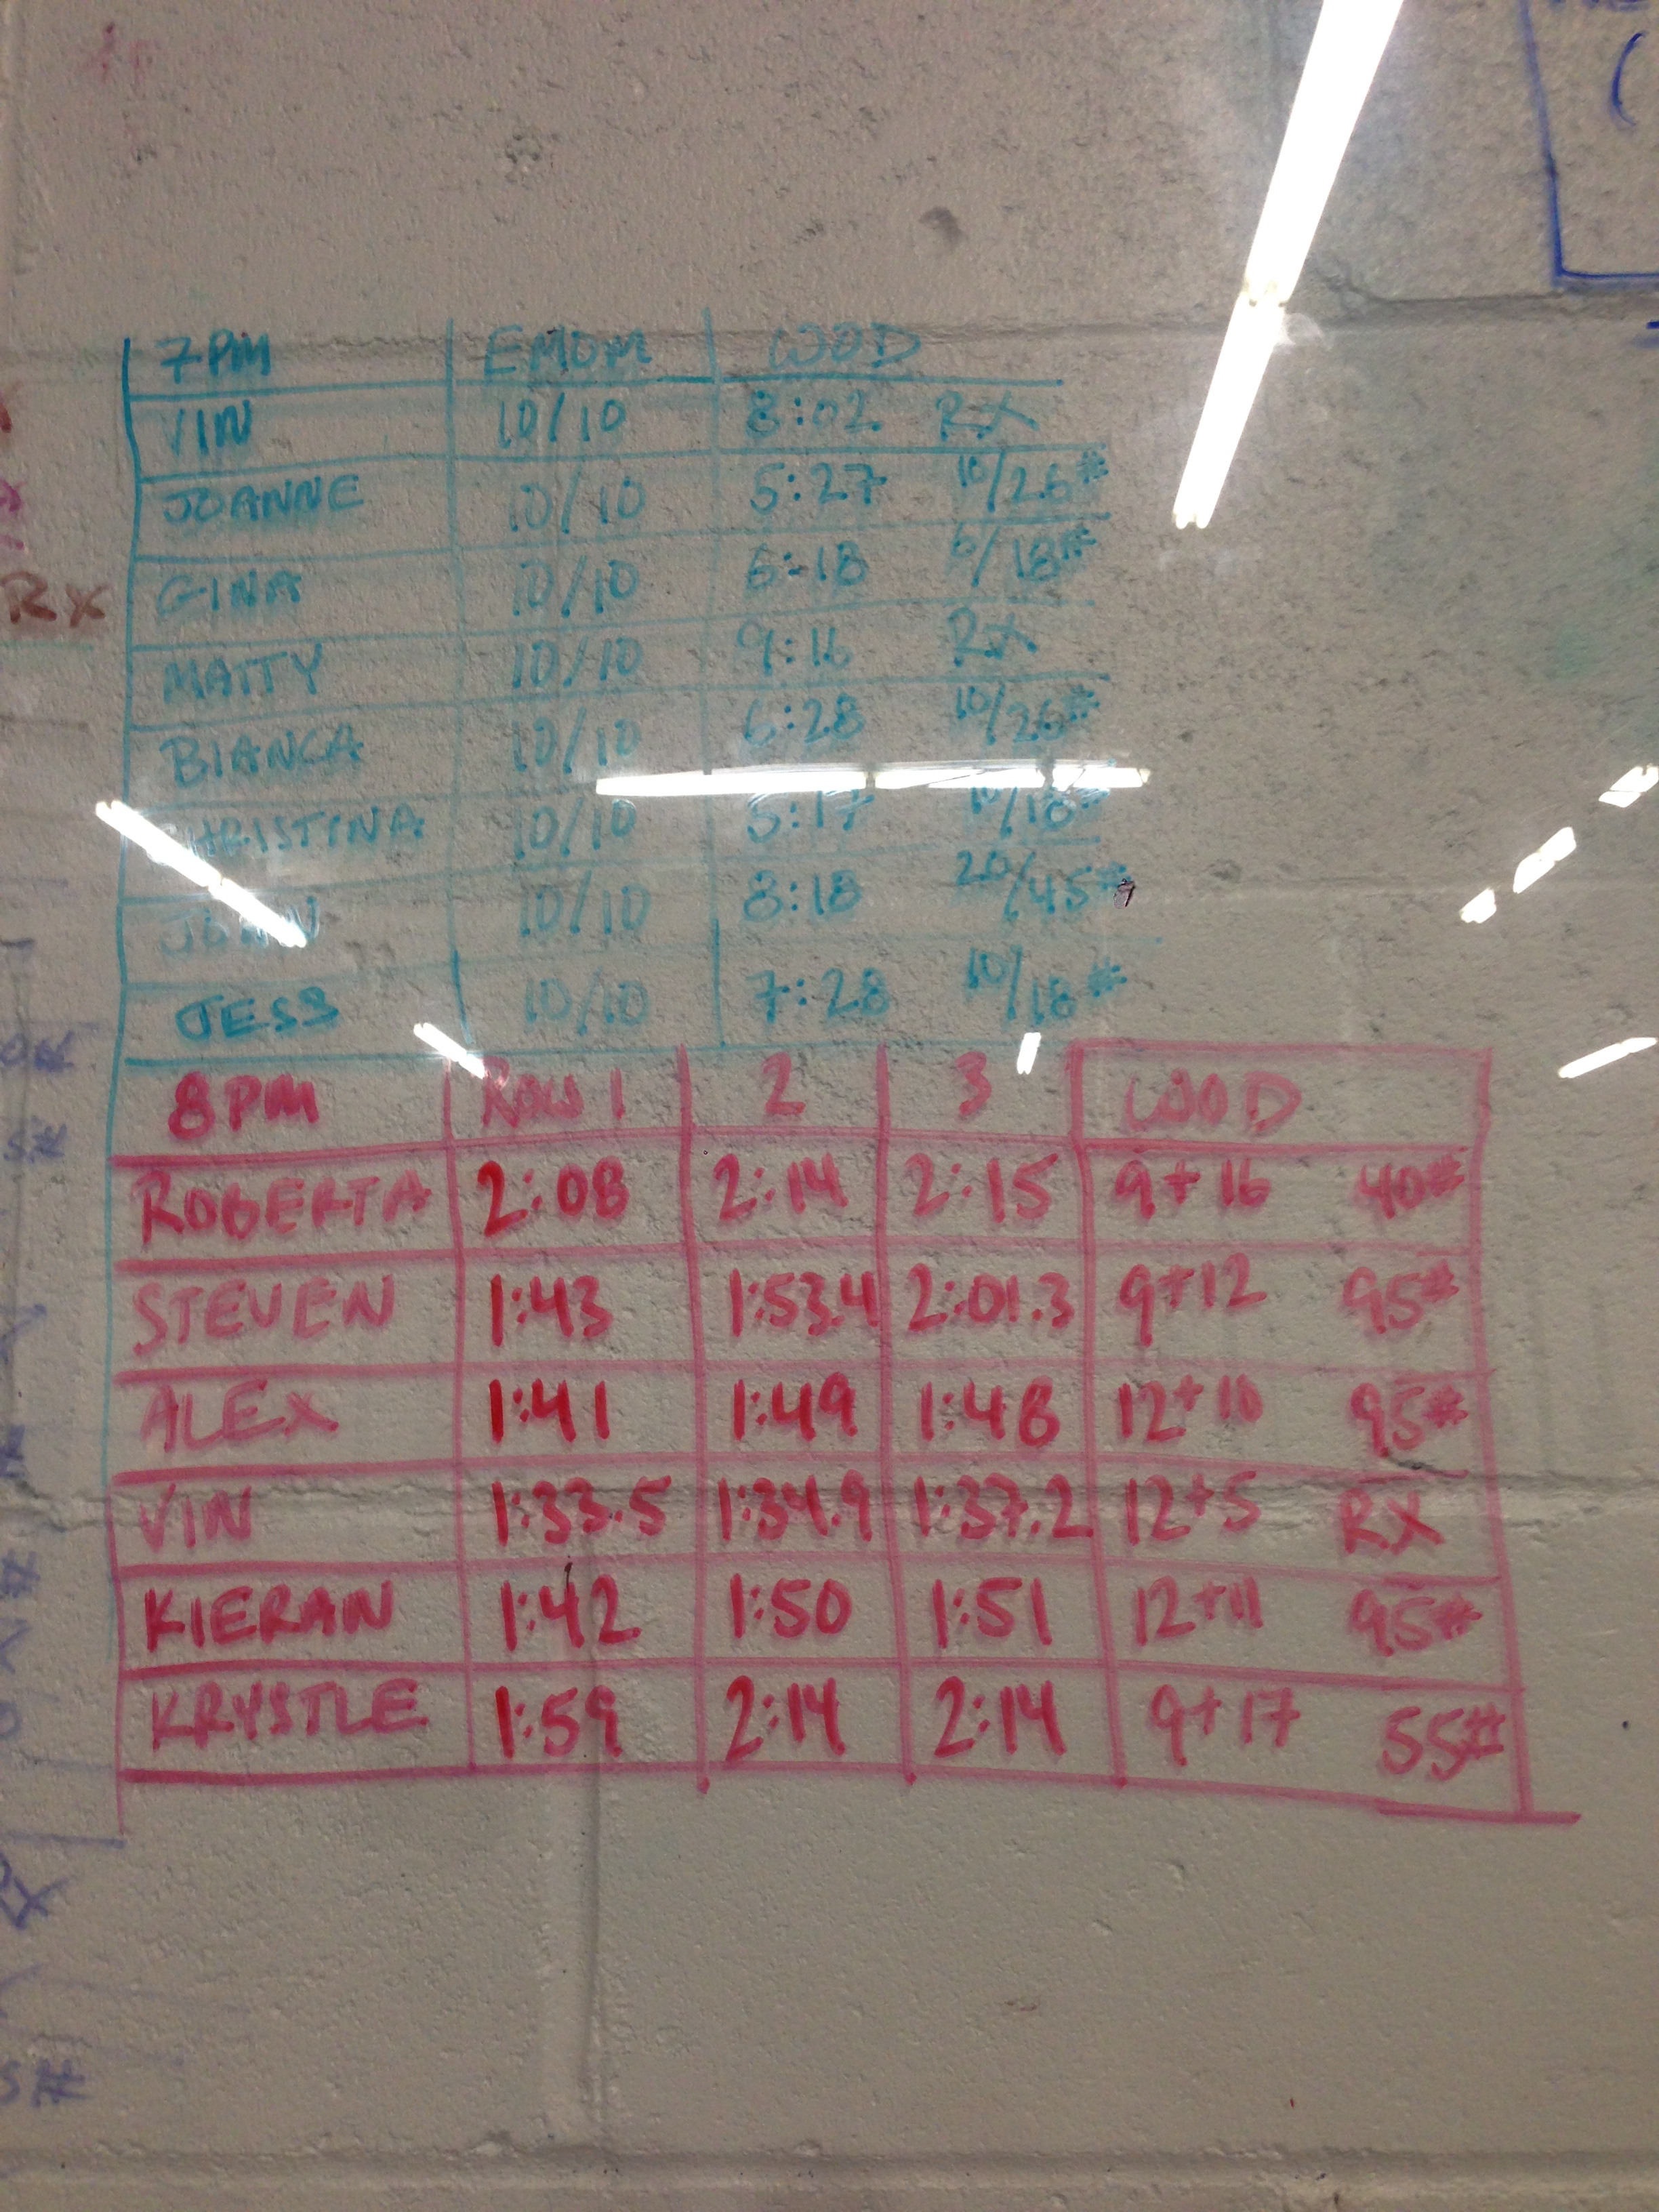 7PM EMOM WOD
VIN 10/10 8:02 RX
JOANNE 10/10 5:27 10/26#
GINA 10/10 6:18 6/18#
MATTY 10/10 9:16 RX
BIANCA 10/10 6:28 10/26#
CHRISTINA 10/10 5:17 10/18#
10/10 8:18 20/45#
JESS 10/10 7:28 10/18#
8PM ROW 1 2 3 WOD
ROBERTA 2:08 2:14 2:15 9+16 40#
STEVEN 1:43 1:53.4 2:01.3 9+12 95#
ALEX 1:41 1:49 1:48 12+10 95#
VIN 1:33.5 1:34.9 1:37.2 12+5 RX
KIERAN 1:42 1:50 1:51 12+11 95#
KRYSTLE 1:59 2:14 2:14 9+17 55#
RX